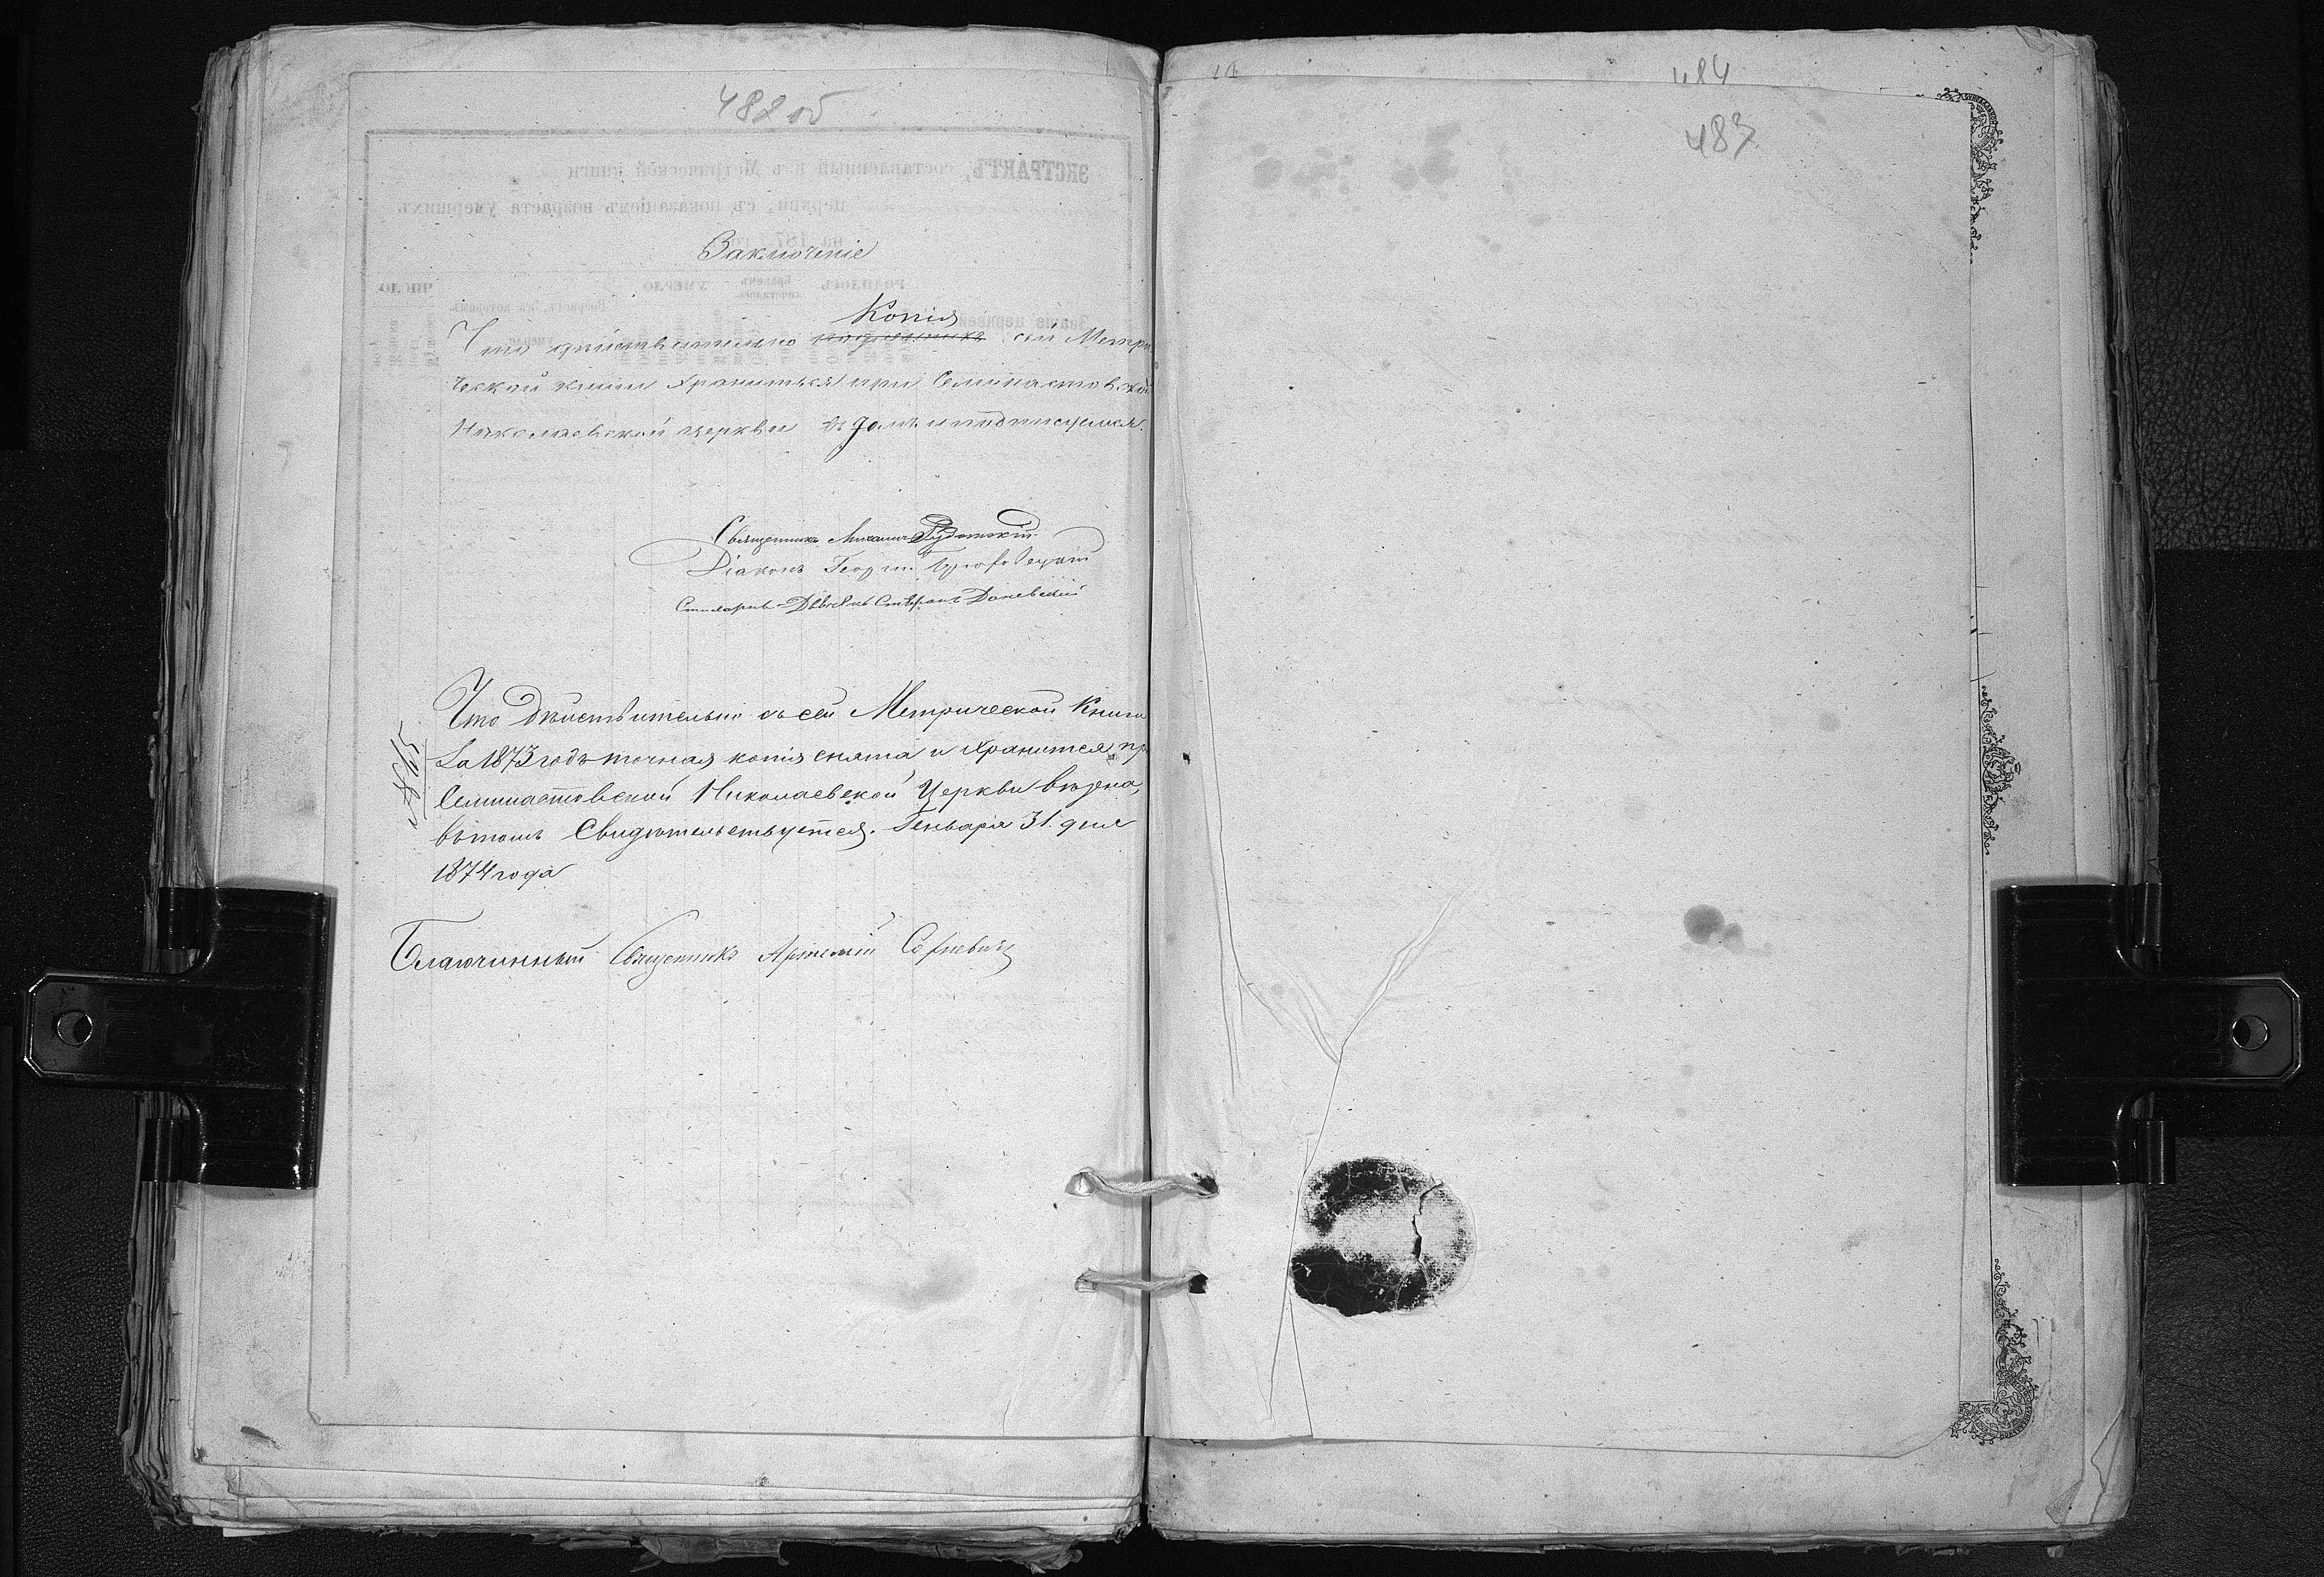 482 об
Заключеніе
Копія
Что дѣйствительно подлинникъ сей Метри
ческой книги хранится при Семинастовской
Николаевской церкви въ томъ и подписуемся.
Священникъ Михаилъ
Діаконъ Георгій
Стихарный Дьячекъ Стефанъ Даневскій
Что дѣйствительно съ сей Метрической Книги
За 1873 годъ точная копія снята и хранится пр
Семинастовской Николаевской Церкви
въ томъ Свидѣтельствуется. Генваря 31 дня
1874 года
Благочинный Священникъ Артемій
484
483